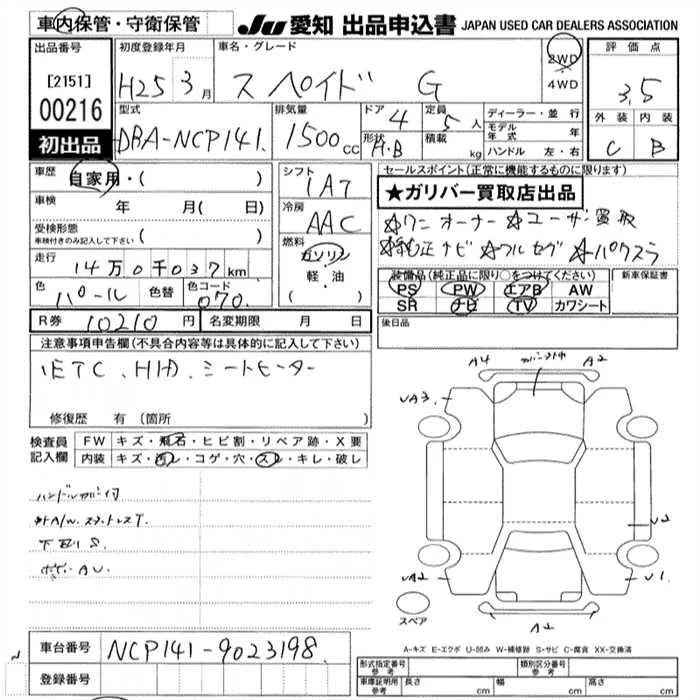 車内保管・守衛保管
JU 愛知 出品申込書 JAPAN USED CAR DEALERS ASSOCIATION
出品番号
[2151]
00216
初出品
初度登録年月
H25 3月
車名・グレード
スペイド G
2WD
4WD
評価点
3.5
外装 内装
C B
型式
DBA-NCP141
排気量
1500cc
ドア 4
形状 H.B
定員 5人
積載 kg
ディーラー・並行
モデル年式 年
ハンドル 左・右
車歴 自家用・( )
車検 年 月( 日)
受検形態
車検付きのみ記入して下さい ( )
走行 14万0千037km
色 パール 色替 色コード 070
シフト
1AT
冷房
AAC
燃料
ガソリン
軽・油
( )
セールスポイント(正常に機能するものに限ります)
★ガリバー買取店出品
☆ワンオーナー ☆ユーザー買取
☆純正ナビ ☆フルセグ ☆バクスラ
装備品(純正品に限り○をつけてください)
PS PW エアB AW
SR ナビ TV カワシート
新車保証書
後日品
R券 10210円 名変期限 月 日
注意事項申告欄(不具合内容等は具体的に記入して下さい)
ETC、HID、シートヒーター
修復歴 有(箇所 )
検査員記入欄
FW キズ・飛石・ヒビ割・リペア跡・X要
内装 キズ・汚レ・コゲ・穴・スレ・キレ・破レ
ハンドルカバー付
下回りS
ボディAU
A4 A2
UA3
U2
UA2 U1
A2
スペア
A-キズ E-エクボ U-凹み W-補修跡 S-サビ C-腐食 XX-交換済
車台番号 NCP141-9023198
登録番号
形式指定番号 参考
類別区分番号 参考
車庫証明用 参考 長さ cm 幅 cm 高さ cm